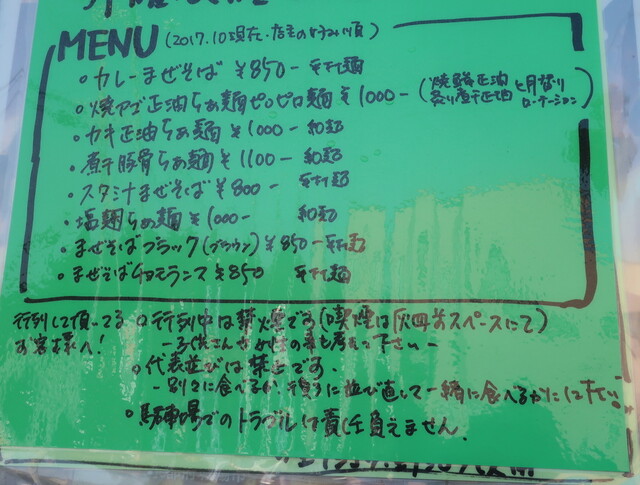 MENU (2017.10現在・店主の好み順)
・カレーまぜそば ¥850- 平打麺
・焼アゴ正油らぁ麺ピロピロ麺 ¥1000- (焼鯖正油 炙り煮干正油 と月替り ローテーション)
・カキ正油らぁ麺 ¥1000- 和麺
・煮干豚骨らぁ麺 ¥1100- 和麺
・スタミナまぜそば ¥800- 平打麺
・塩麹らぁ麺 ¥1000- 和麺
・まぜそばブラック(ブラウン) ¥850- 平打麺
・まぜそば ¥850 平打麺
行列して頂いてる
お客様へ!
・行列中は禁煙です(喫煙は灰皿前スペースにて)
-子供さんや女性の事も考えて下さい-
・代表並びは禁止です。
-別々に食べるか、後ろに並び直して一緒に食べるかにして下さい。
・駐車場でのトラブルは責任負えません。